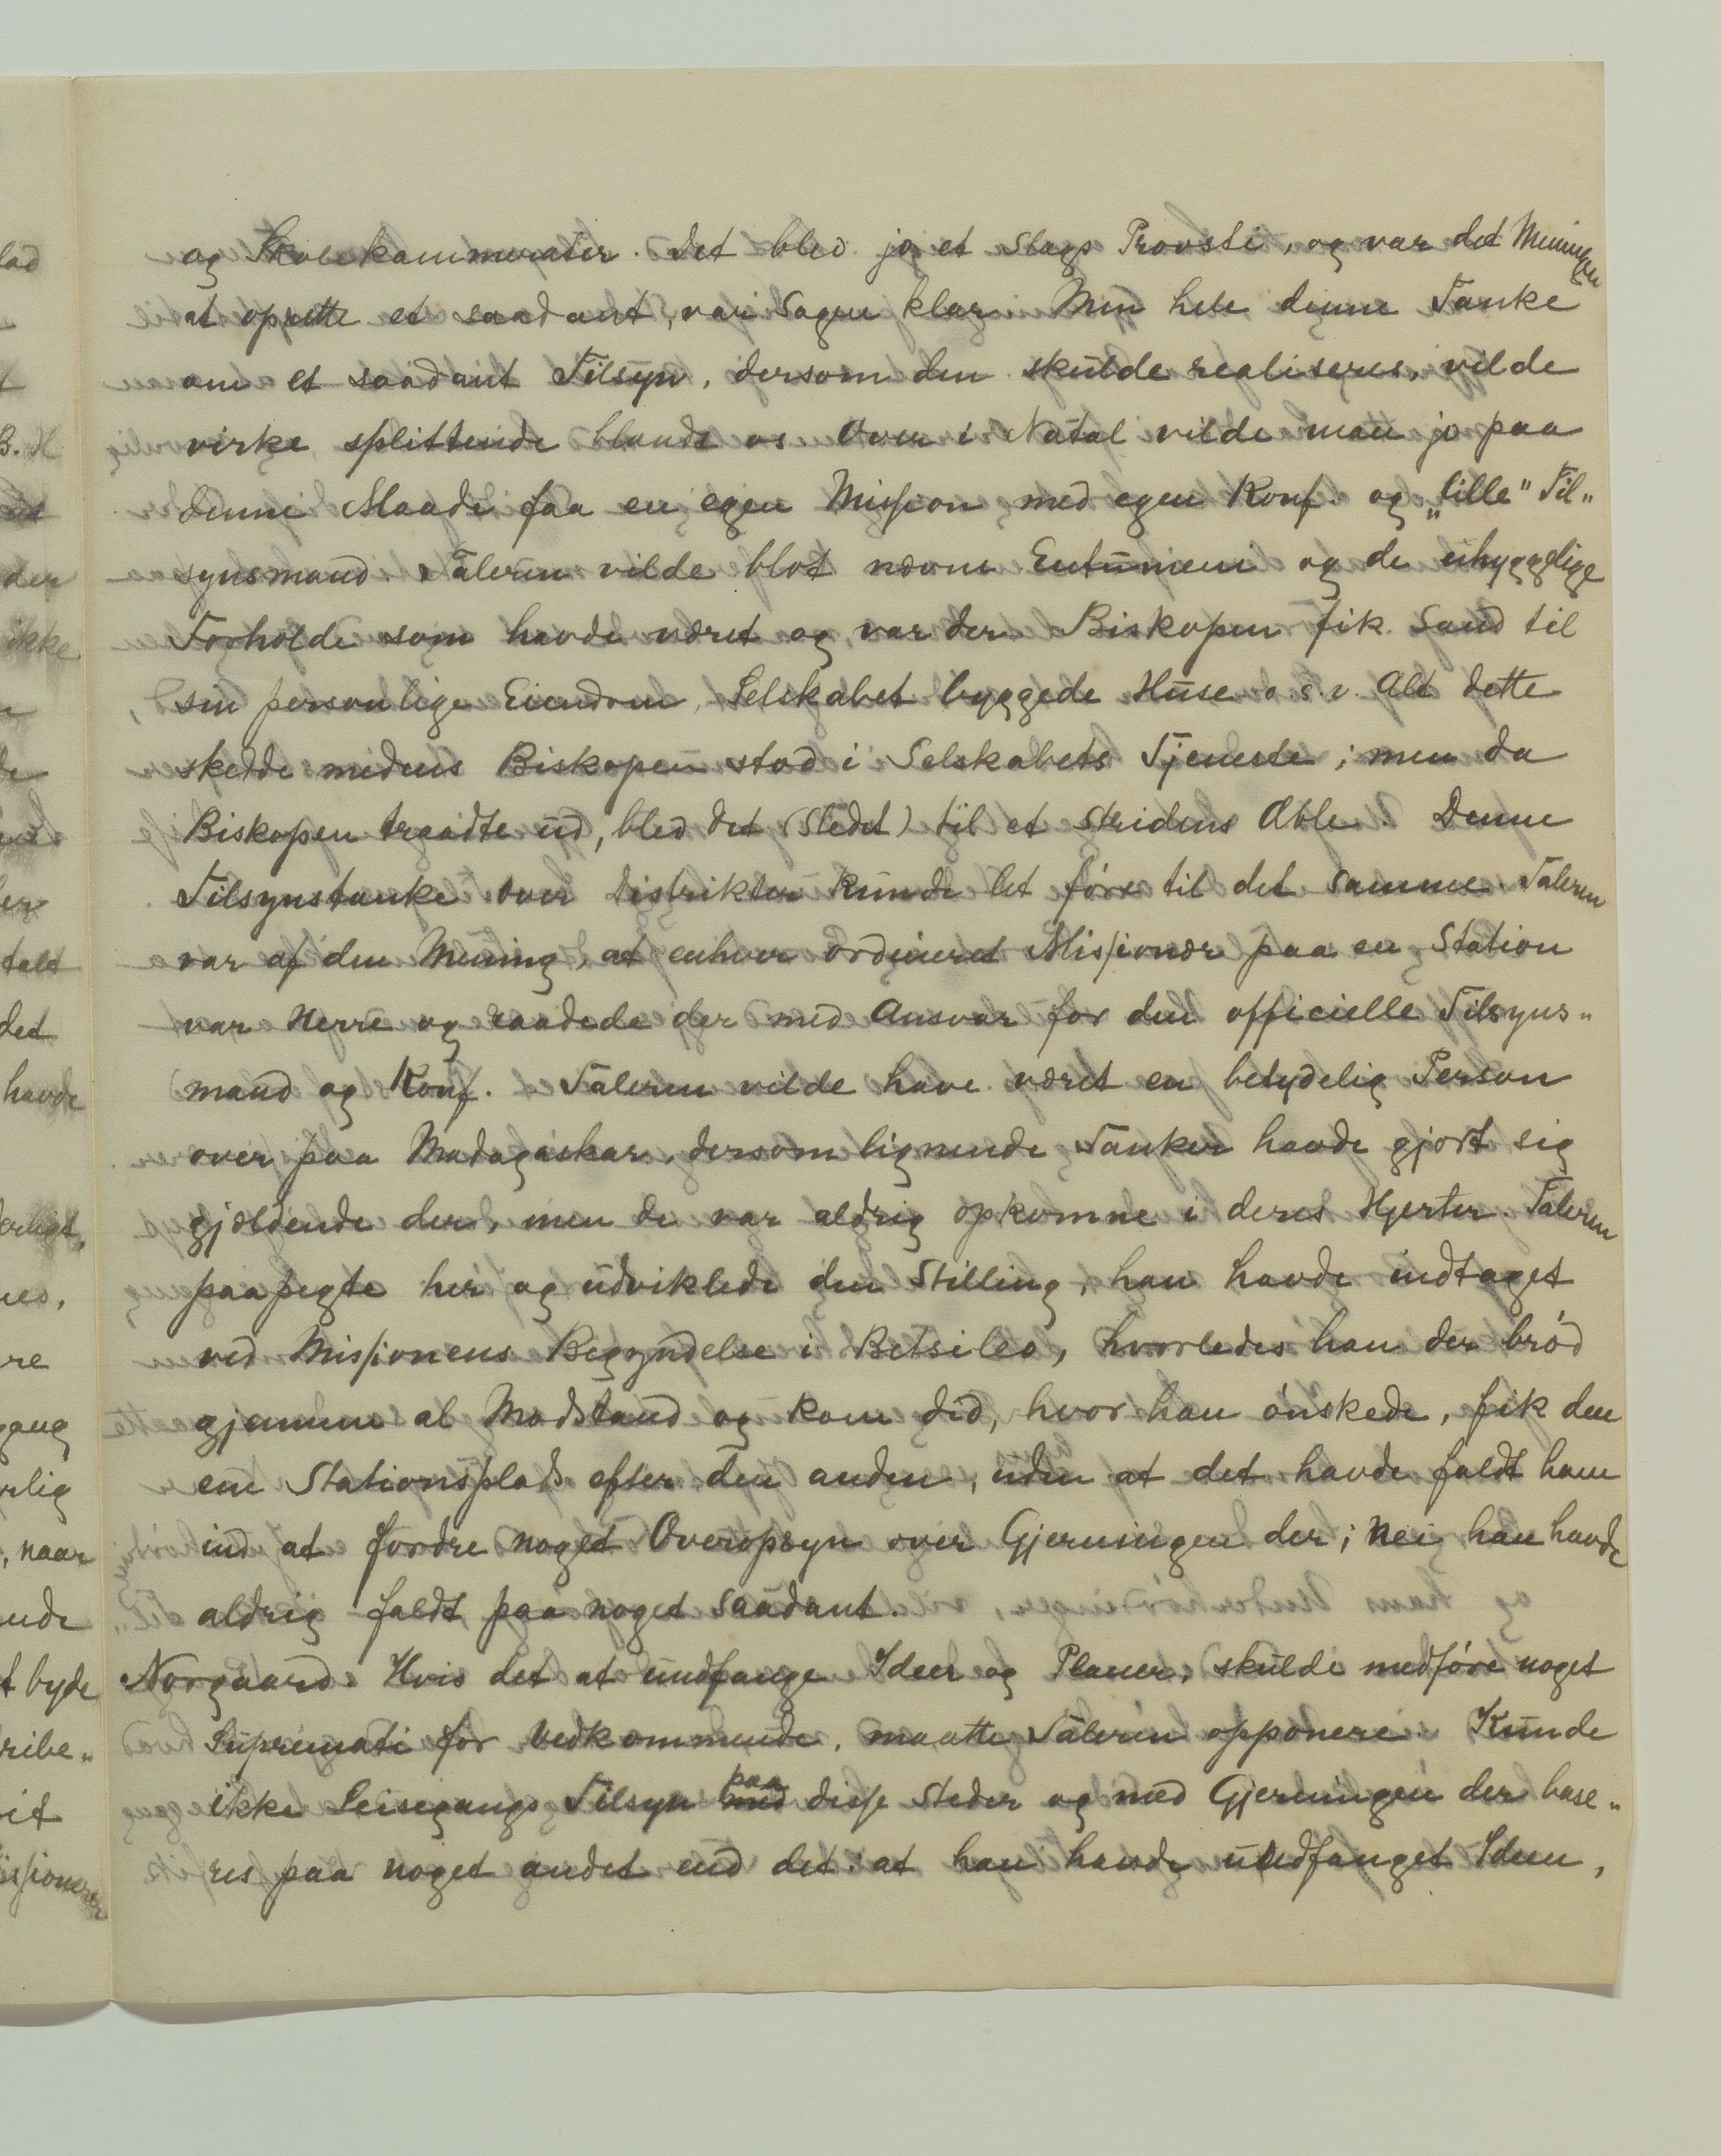 og Skolekammerater. Det blev jo et Slags Provsti, og var det Meningen
at oprette et saadant, var Sagen klar. Men hele denne Tanke
om et saadant Tilsyn, dersom den skulde realiseres, vilde
virke splittende blandt os. Over i Natal vilde man jo paa
denne Maade faa en egen Mission med egen Konf. og „lille" Til„
synsmand. Taleren vilde blot nævne Entumeni og de uhyggelige
Forholde som havde været og var der. Biskopen fik Land til
sin personlige Eiendom, Selskabet byggede Huse o.s.v. Alt dette
skedde medens Biskopen stod i Selskabets Tjeneste; men da
Biskopen traadte ud, blev det (Stedet) til et Stridens Æble. Denne
Tilsynstanke over Distrikter kunde let føre til det samme. Taleren
var af den Mening, at enhver ordineret Missionær paa en Station
var Herre og raadede der med Ansvar for den officielle Tilsyns„
mand og Konf. Taleren vilde have været en betydelig Person
over paa Madagaskar, dersom lignende Tanker havde gjort sig
gjældende der, men de var aldrig opkomne i deres Hjerter. Taleren
paapegte her og udviklede den Stilling, han havde indtaget
ved Missionens Begyndelse i Betsileo, hvorledes han der brød
gjennem al Modstand og kom did, hvor han ønskede, fik den
ene Stationsplads efter den anden, uden at det havde faldt ham
ind at fordre noget Overopsyn over Gjerningen der; nei han havde
aldrig faldt paa noget saadant.
Norgaard. Hvis det at undfange Ideer og Planer, skulde medføre noget
Supremati for Vedkommende, maatte Taleren opponere. Kunde
ikke Leisegangs Tilsyn med paa disse Steder og med Gjerningen der base„
res paa noget andet end det: at han havde undfanget Ideen,